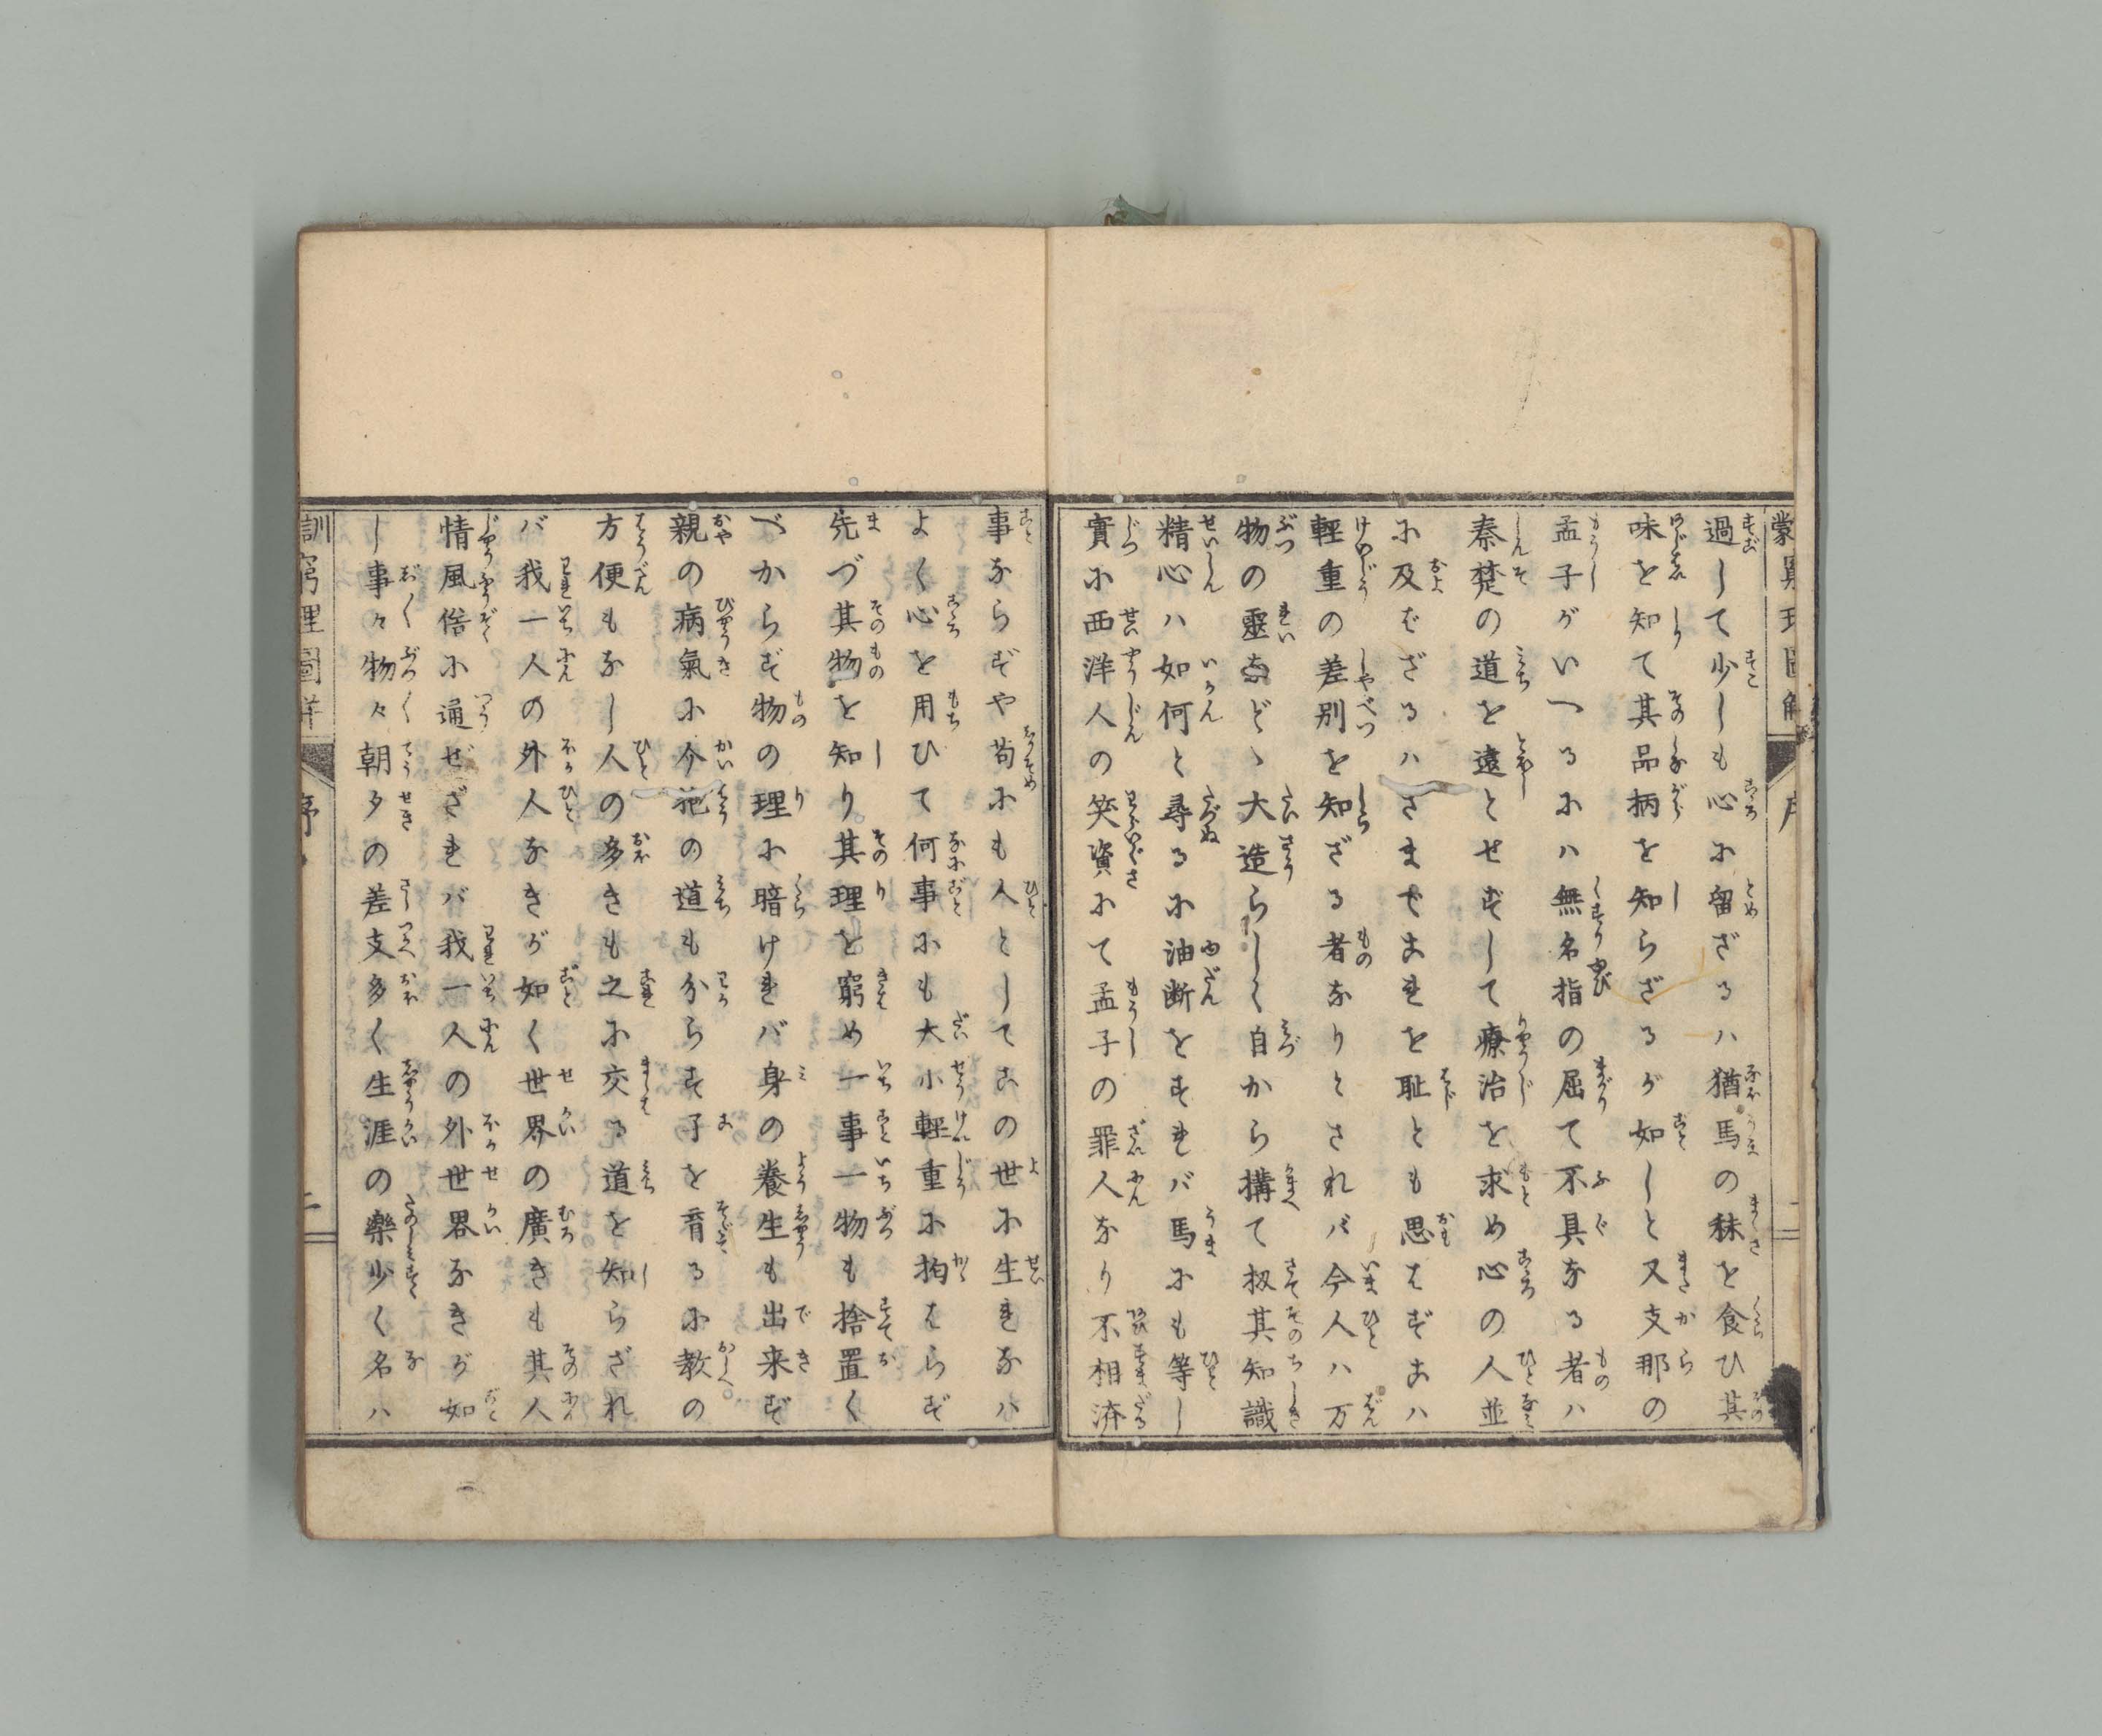 過して少しも心に留ざるハ猶馬の秣を食ひ其
味を知て其品柄を知らざるが如しと又支那の
孟子がいへるにハ無名指の屈て不具なる者ハ
秦楚の道を遠とせずして療治を求め心の人並
に及ばざるハさまでこれを耻とも思はずこハ
輕重の差別を知ざる者なりとされバ今人ハ万
物の靈などゝ大造らしく自から構て扨其知識
精心ハ如何と尋るに油断をすれバ馬にも等し
實に西洋人の笑資にて孟子の罪人なり不相済
事ならずや苟にも人としてこの世に生れなハ
よく心を用ひて何事にも大小輕重に拘はらず
先づ其物を知り其理を窮め一事一物も捨置く
べからず物の理に暗ければ身の養生も出来ず
親の病氣に介抱の道も分らず子を育るに教の
方便もなし人の多きも之に交る道を知らざれ
バ我一人の外人なきが如く世界の廣きも其人
情風俗に通ぜざれバ我一人の外世界なきが如
し事々物々朝夕の差支多く生涯の樂少く名ハ
訓窮理圖解
序
二